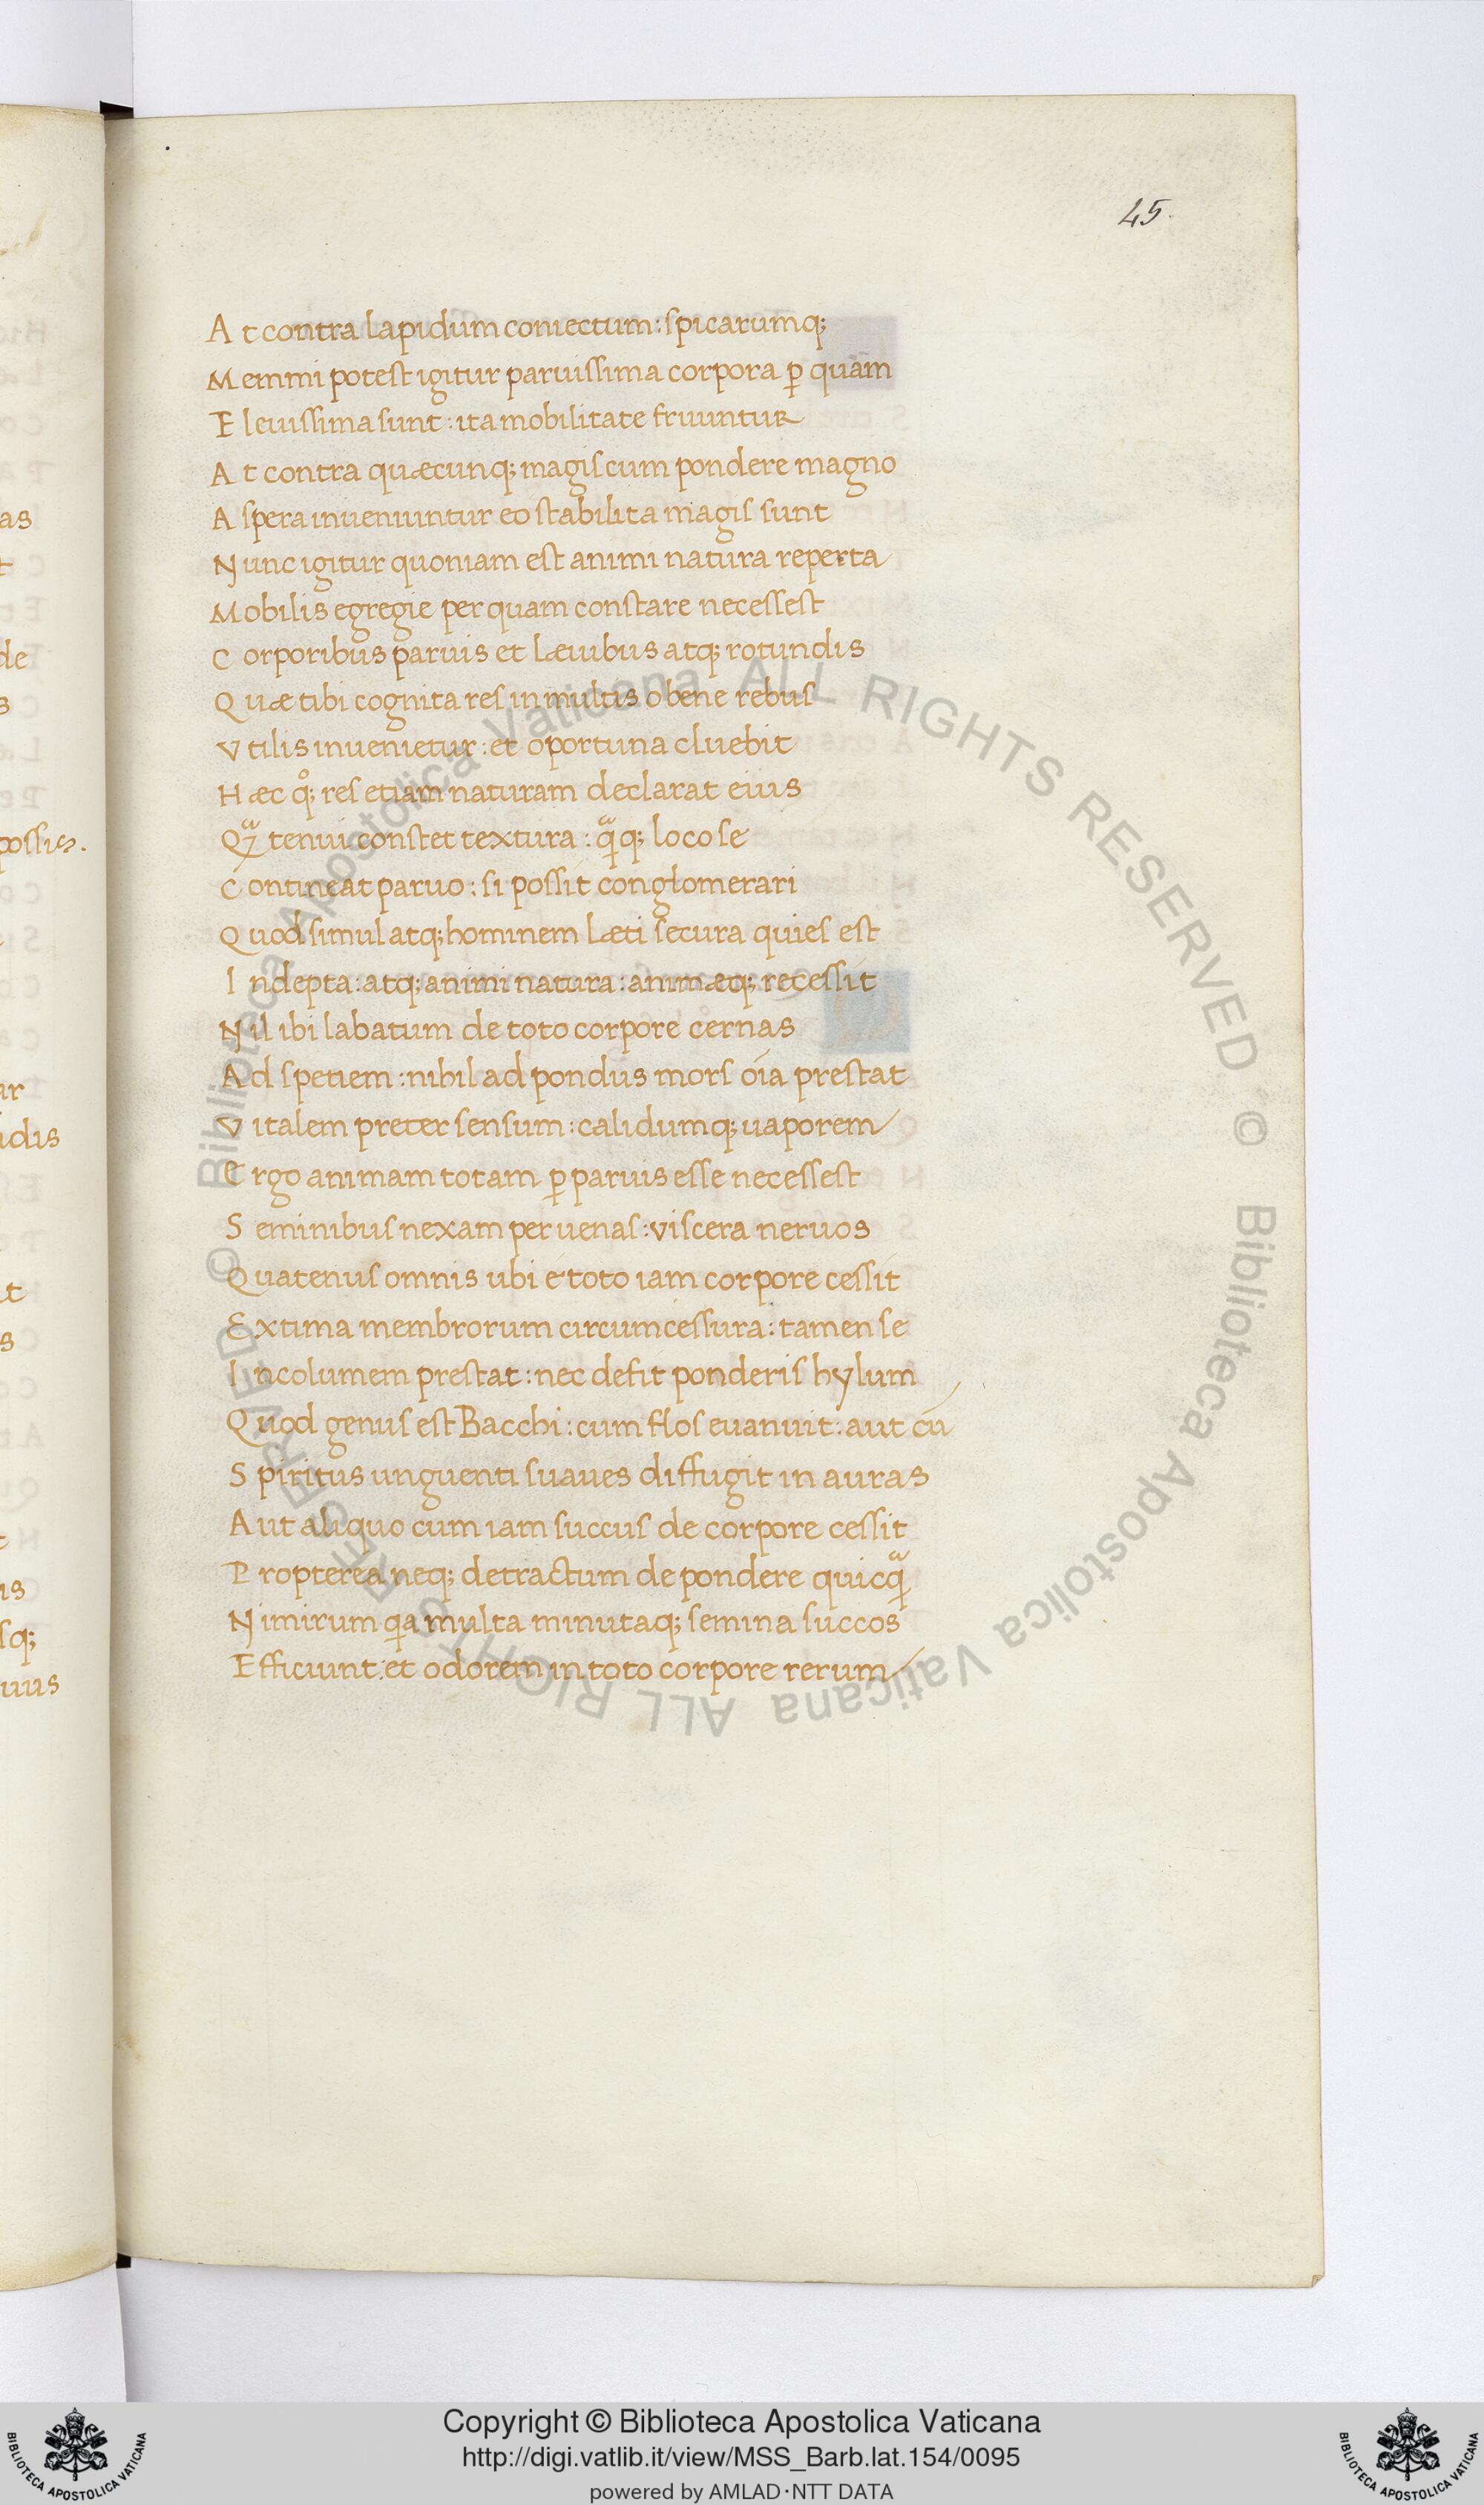 45.
At contra lapidum coniectum: spicarumq;
Memmi potest igitur paruissima corpora ꝑ quam
E leuissima sunt: ita mobilitate fruuntur
At contra quæcunq; magis cum pondere magno
Aspera inueniuntur eo stabilita magis sunt
Nunc igitur quoniam est animi natura reperta
Mobilis egregie per quam constare necessest
Corporibus paruis et læuibus atq; rotundis
Quæ tibi cognita res in multis o bene rebus
Vtilis inuenietur: et oportuna cluebit
Hæc qͦ; res etiam naturam declarat eius
tenui constet textura: loco se
Contineat paruo: si possit conglomerari
Quod simul atq; hominem læti secura quies est
Indepta: atq; animi natura: animæq; recessit
Nil ibi labatum de toto corpore cernas
Ad spetiem: nihil ad pondus mors oīa prestat
Vitalem preter sensum: calidumq; uaporem
Ergo animam totam ꝑ paruis esse necessest
Seminibus nexam per uenas: viscera neruos
Quatenus omnis ubi e toto iam corpore cessit
Extima membrorum circumcessura: tamen se
Incolumem prestat: nec defit ponderis hylum
Quod genus est Bacchi: cum flos euanuit: aut cū
Spiritus unguenti suaues diffugit in auras
Aut aliquo cum iam succus de corpore cessit
Propterea neq; detractum de pondere quicq̃
Nimirum qa multa minutaq; semina succos
Efficiunt: et odorem in toto corpore rerum
Copyright © Biblioteca Apostolica Vaticana
http://digi.vatlib.it/view/MSS_Barb.lat.154/0095
powered by AMLAD·NTT DATA
BIBLIOTECA APOSTOLICA VATICANA
BIBLIOTECA APOSTOLICA VATICANA
© Biblioteca Apostolica Vaticana ALL RIGHTS RESERVED © Biblioteca Apostolica Vaticana ALL RIGHTS RESERVED